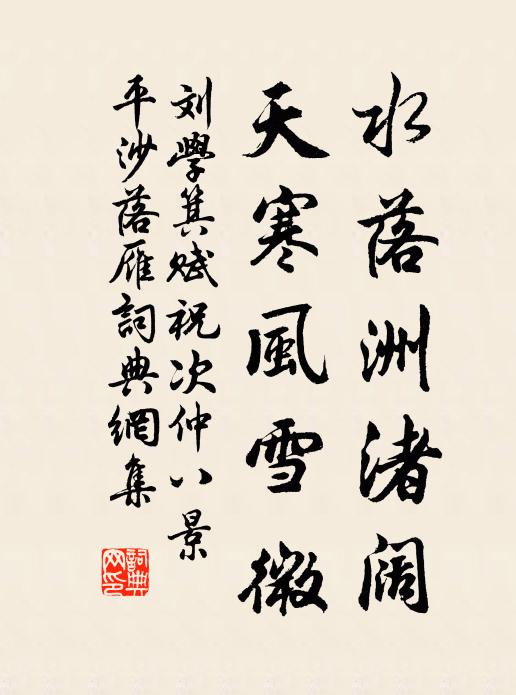 水落洲渚阔
天寒風雪微
刘學箕赋祝次仲八景
平沙落雁詞典網集
詞典網印